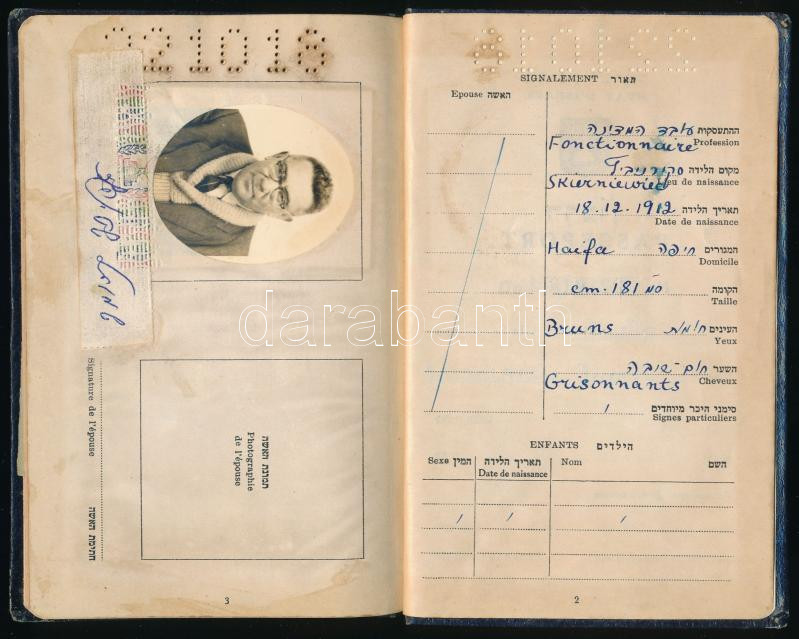 221016
SIGNALEMENT תאור
Epouse האשה
ההתעסקות עובד המדינה
Profession Fonctionnaire
מקום הלידה סקירניביץ
Lieu de naissance
תאריך הלידה 18.12.1912
Date de naissance
המגורים חיפה Haifa
Domicile
הקומה 181 ס"מ cm.
Taille
העינים חומות Bruns
Yeux
השער חום-שיבה
Cheveux Grisonnants
סימני היכר מיוחדים
Signes particuliers
ENFANTS הילדים
Sexe המין תאריך הלידה Nom השם
Date de naissance
2
שמואל
Signature de l'épouse
חתימת האשה
תמונת האשה
Photographie
de l'épouse
3
darabanth